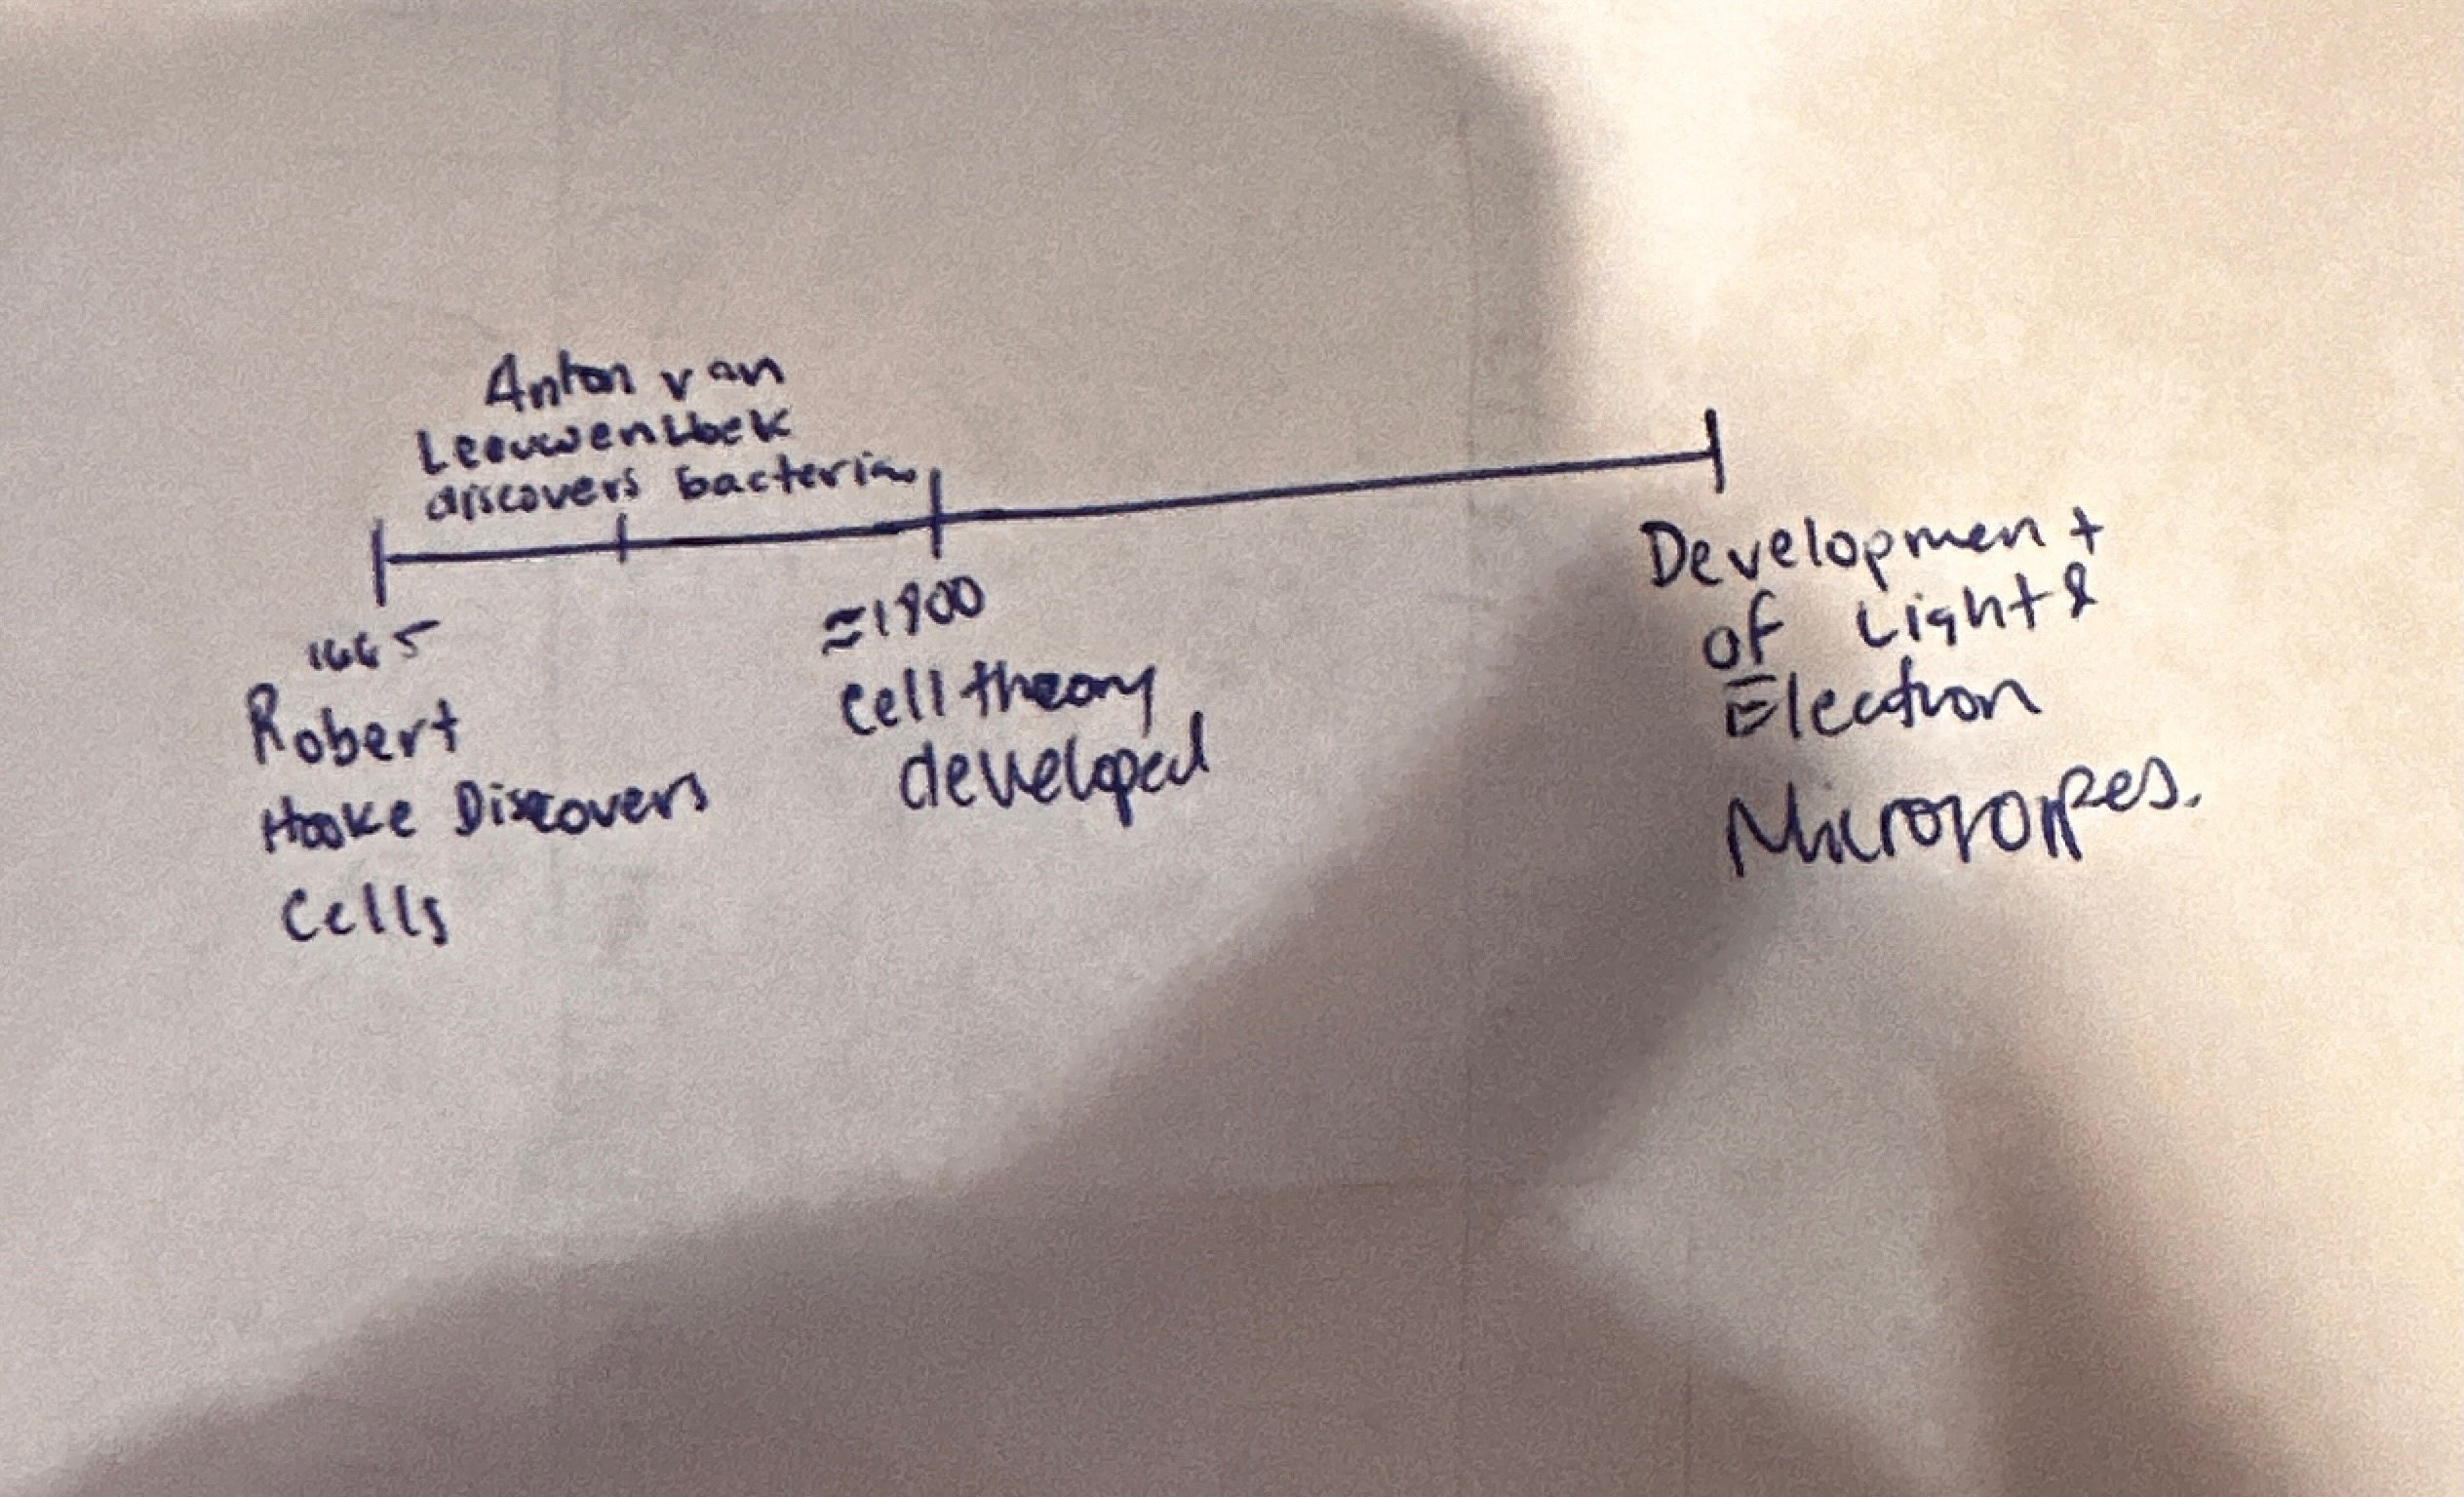 Anton van
Leeuwenhoek
discovers bacteria
1665
Robert
Hooke Discovers
Cells
≈1800
Cell theory
developed
Development
of Light &
Electron
Microscopes.